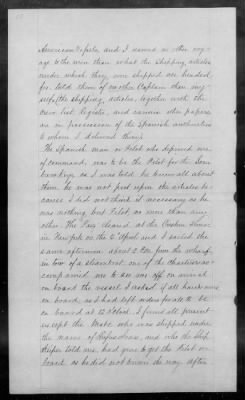 American papers, and I issued no other voy-
age to the men than what the shipping articles
under which they were shipped all headed
for. I told them of no other Captain than my-
self, the shipping articles, together with the
crew list, register, and various other papers
are in possession of the Spanish authorities
to whom I delivered them.
The Spanish man or Pilot who deprived me
of command was to be the Pilot for the
as I was told he knew all about
them. he was not put upon the articles be-
cause I did not think it necessary as he
was nothing but Pilot, no more than any
other. The Brig cleared at the Custom House
in New York on the 2 April and I sailed the
same afternoon about 2 P.m. from the wharf
in tow of a steamboat. one of the charterers ac-
companied me to sea on my arrival
on board the vessel I asked if all hands were
on board, as I had left orders for all to be
on board at 12 o'clock. I found all present
except the Mate who was shipped under
the name of and who the Ship
Keeper told me, had gone to get the Pilot on
board as he did not know the way after